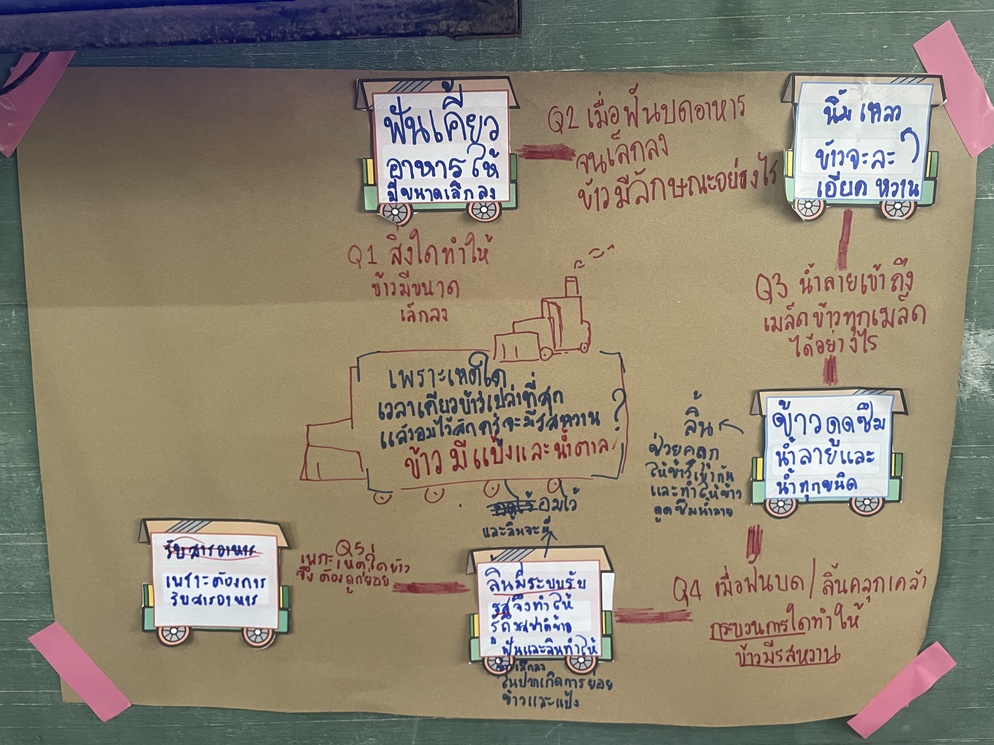 ฟันเคี้ยว
อาหารให้
มีขนาดเล็กลง
Q1 สิ่งใดทำให้
ข้าวมีขนาด
เล็กลง
Q2 เมื่อฟันบดอาหาร
จนเล็กลง
ข้าวมีลักษณะอย่างไร
นิ่ม เหลว
ข้าวจะละ
เอียด หวาน
Q3 น้ำลายเข้าถึง
เมล็ดข้าวทุกเมล็ด
ได้อย่างไร
เพราะเหตุใด
เวลาเคี้ยวข้าวเปล่าที่สุก
แล้วอมไว้สักครู่จะมีรสหวาน ?
ข้าว มี แป้งและน้ำตาล
ข้าวดูดซึม
น้ำลายและ
น้ำทุกชนิด
ลิ้น
ช่วยคลุก
ให้ข้าวเข้ากัน
และทำให้ข้าว
ดูดซึมน้ำลาย
Q4 เมื่อฟันบด/ลิ้นคลุกเคล้า
กระบวนการใดทำให้
ข้าวมีรสหวาน
อมไว้
และลิ้นจะมี
ลิ้นมีระบบรับ
รสจึงทำให้
รู้ถึงรสชาติข้าว
ฟันและลิ้นทำให้
ข้าวเล็กลง
ในปากเกิดการย่อย
ข้าวและแป้ง
Q5
เพราะเหตุใดข้าว
จึงต้องถูกย่อย
รับสารอาหาร
เพราะต้องการ
รับสารอาหาร